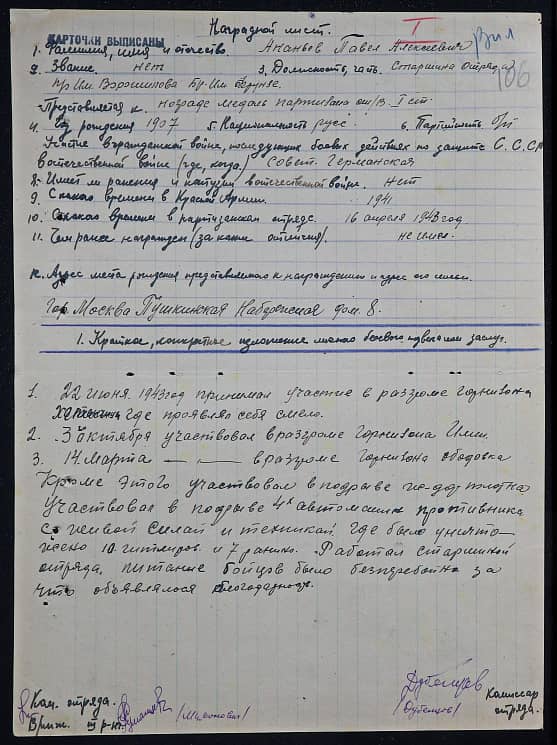 Наградной лист. I
КАРТОЧКИ ВЫПИСАНЫ
106
1. Фамилия, имя и отчество. Ананьев Павел Алексеевич
2. Звание. нет 3. Должность, часть. Старшина отряда
пр Им Ворошилова Бр. Им Фрунзе.
Представляется к. награде медаль партизана от/В. I ст.
4. Год рождения 1907 5. Национальность русс 6. Партийность б/п
Участие в гражданской войне, последующих боевых действиях по защите С.С.С.Р
в отечественной войне (где, когда.) Совет. Германская
8. Имеет ли ранения и контузии в отечественной войне. нет
9. С какого времени в Красной Армии. 1941
10. С какого времени в партизанском отряде. 16 апреля 1943 год
11. Чем ранее награжден (за какие отличия). не имел.
12. Адрес места рождения представляемого к награждению и адрес его семьи.
Гор. Москва Пушкинская Набережная дом. 8.
1. Краткое, конкретное изложение личного боевого подвига или заслуг.
1. 22 июня 1943 год принимал участие в разгроме горнизона
где проявлял себя смело.
2. 3 октября участвовал в разгроме горнизона Илии.
3. 14 марта — — в разгроме горнизона ободовка
Кроме этого участвовал в подрыве полотна
Участвовал в подрыве 4х автомашин противника
с живой силай и техникай где было уничто
жено 10 гитлеров. и 7 ранино. Работал старшиной
отряда, питание бойцов было безперебойна за
что объявлялося благодарность.
Ком. отряда.
Дубенцов
/Дубенцов/
Комиссар
отряда.